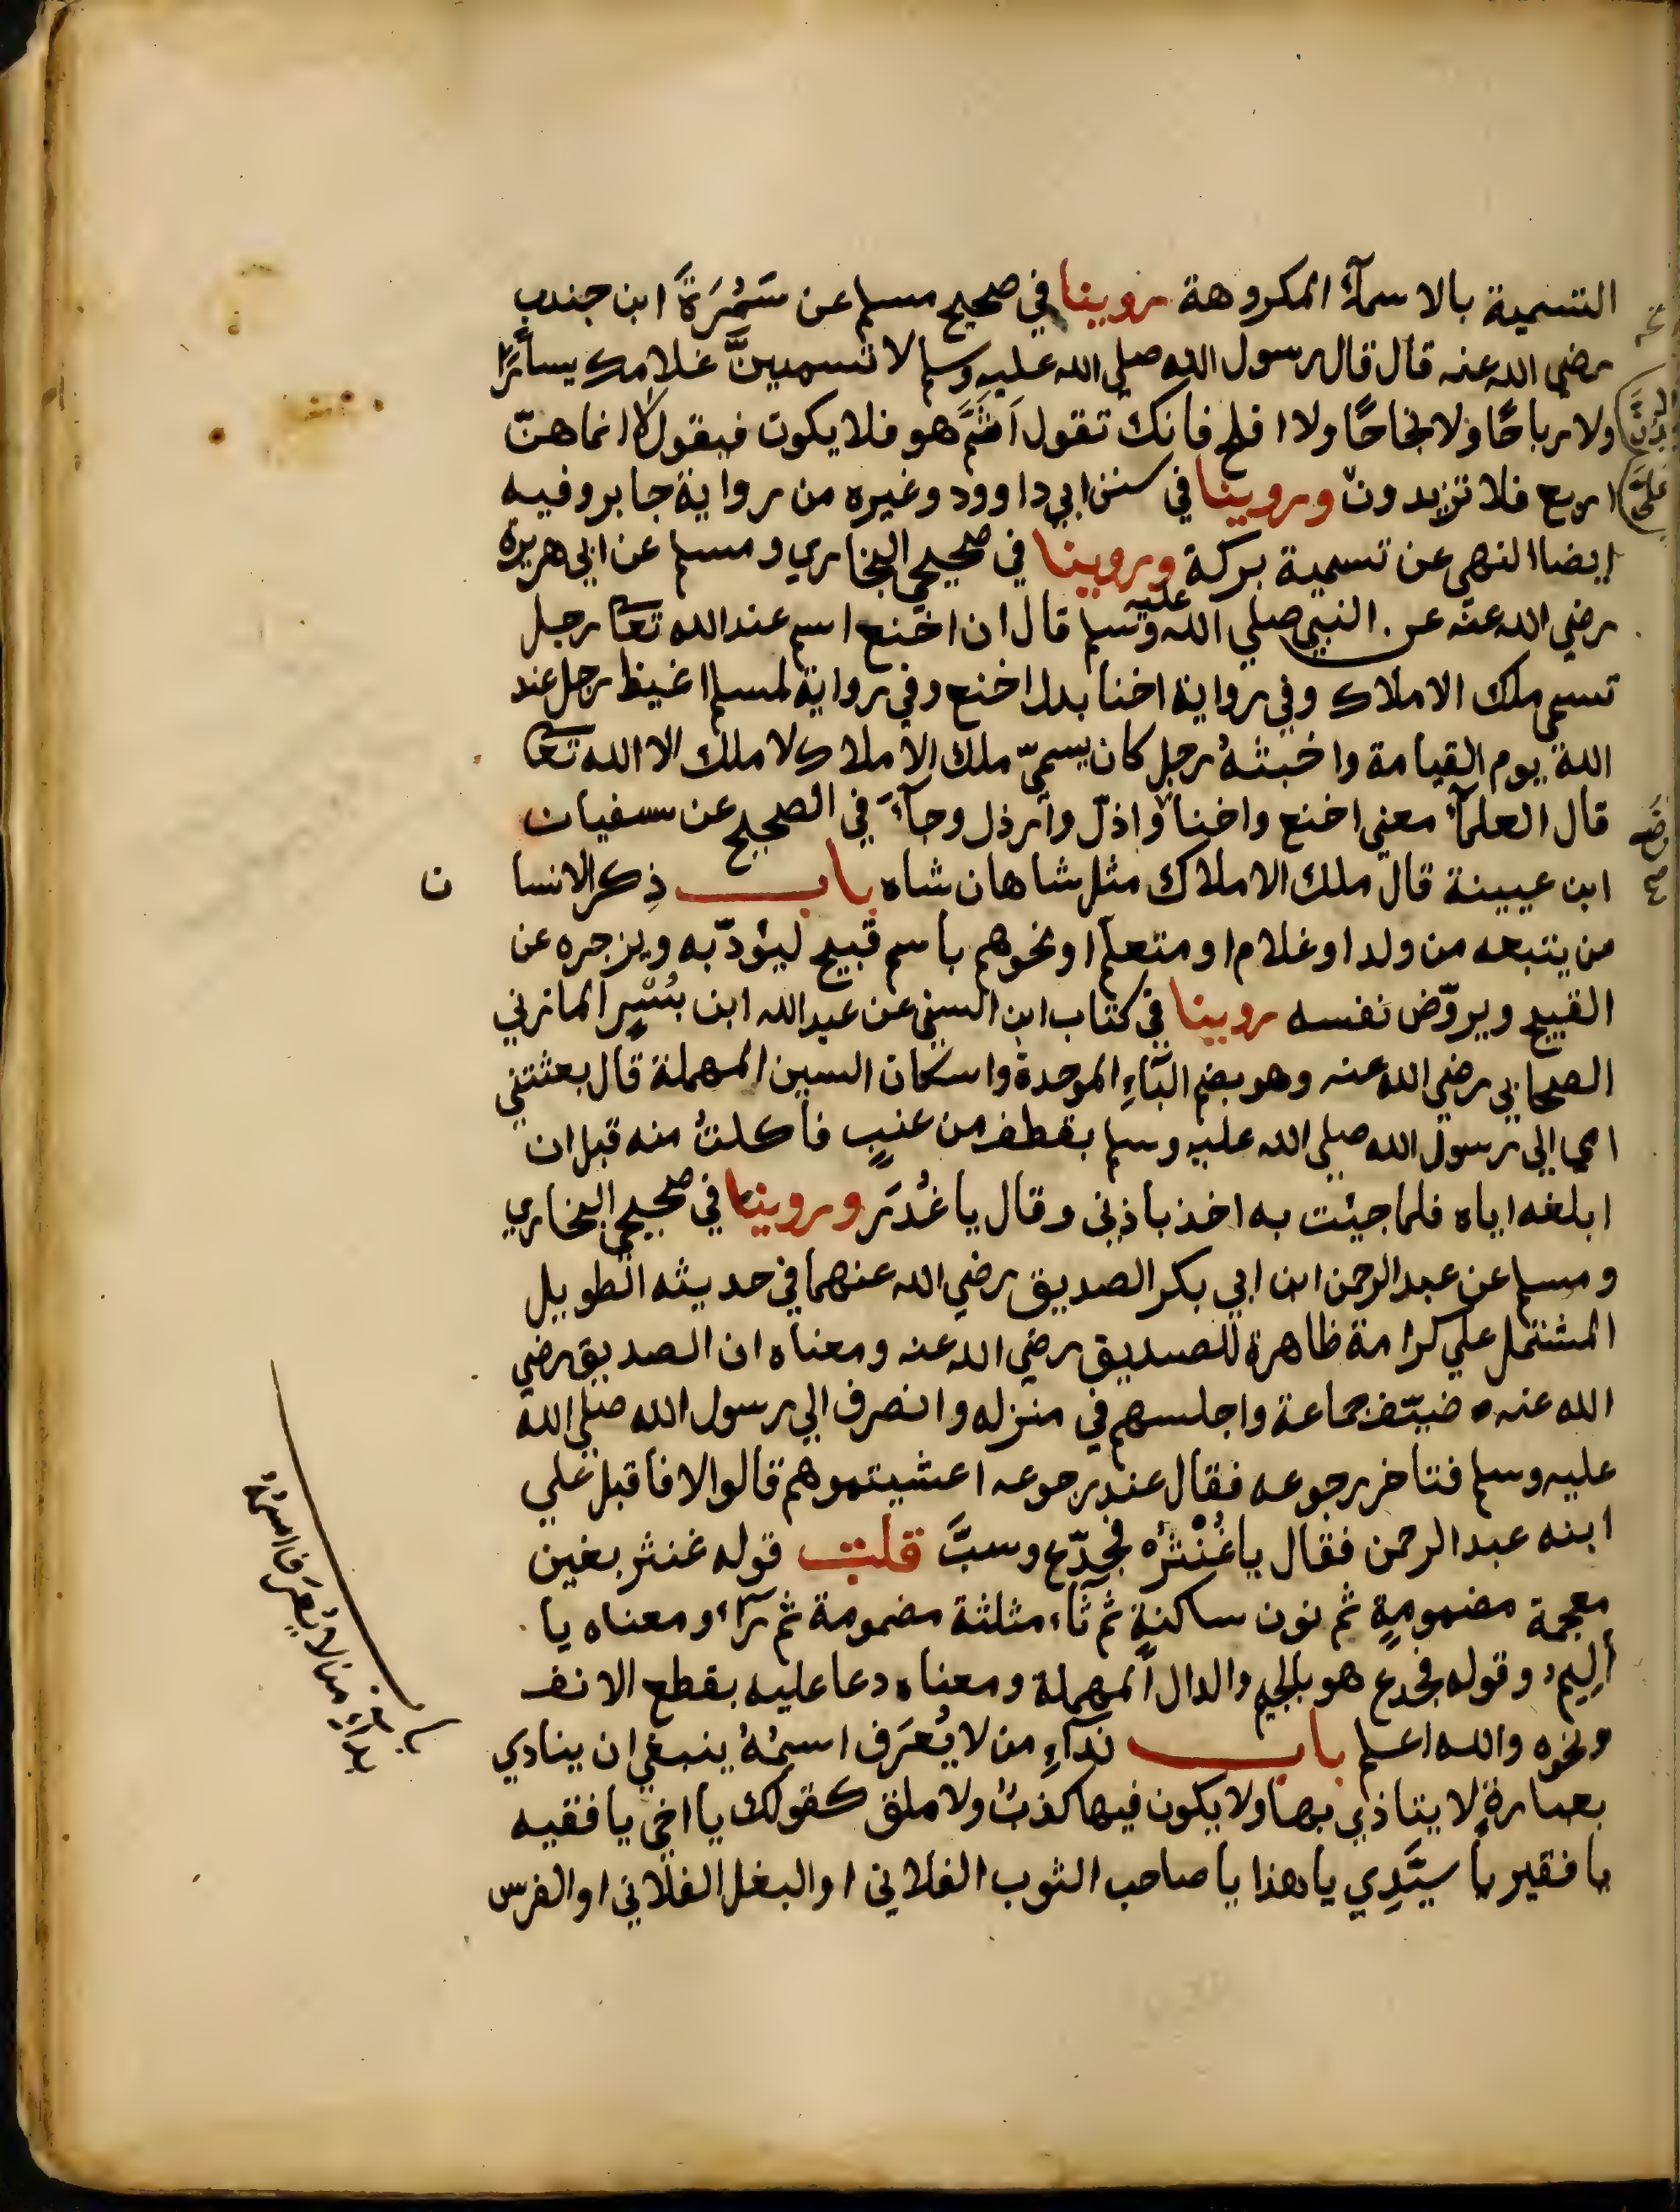 التسمية بالاسمآء المكروهة روينا في صحيح مسلم عن سَمُرَةَ ابن جندب
رضي الله عنه قال قال رسول الله صلي الله عليه وسلم لا تسمينَّ غلامك يسارًا
ولا رباحًا ولا نجاحًا ولا افلح فانك تقول اَثَمَّ هو فلا يكون فيقول لا انما هنّ
اربع فلا تزيدون وروينا في سنن ابي داوود وغيره من رواية جابر وفيه
ايضا النهي عن تسمية بركة وروينا في صحيحي البخاري ومسلم عن ابي هريرة
رضي الله عنه عن النبي صلي الله عليه وسلم قال ان اخنع اسم عند الله تعا رجل
تسمي ملك الاملاك وفي رواية اخنا بدل اخنع وفي رواية لمسلم اغيظ رجل عند
الله يوم القيامة واخبثهُ رجل كان يسميّ ملك الاملاك لا ملك الا الله تعا
قال العلمآء معني اخنع واخنا واذلّ وارذل وجآءَ في الصحيح عن سفيان
ابن عيينة قال ملك الاملاك مثل شاهان شاه باب ذِكر الانسا ن
من يتبعه من ولد او غلام او متعلم او نحوهم باسم قبيح ليؤدّبه ويزجره عن
القبيح ويروّض نفسه روينا في كتاب ابن السني عن عبد الله ابن بُسْرٍ المازني
الصحابي رضي الله عنه وهو بضم البَآءِ الموحدة واسكان السين المهملة قال بعثتني
امي الي رسول الله صلي الله عليه وسلم بقطف من عنبٍ فاكلتُ منه قبل ان
ابلغه اياه فلما جيئت به اخذ باذني وقال يا غُدَر وروينا في صحيحي البخاري
ومسلم عن عبد الرحمن ابن ابي بكر الصديق رضي الله عنهما في حديثه الطويل
المشتمل علي كرامة ظاهرة للصديق رضي الله عنه ومعناه ان الصديق رضي
الله عنه ضيّف جماعة واجلسهم في منزله وانصرف الي رسول الله صلي الله
عليه وسلم فتاخر رجوعه فقال عند رجوعه اعشيتموهم قالوا لا فاقبل علي
ابنه عبد الرحمن فقال يا غُنْثرُ فجدّع وسبَّ قلت قوله غنثر بغين
معجمة مضمومةٍ ثم نون ساكنةٍ ثم ثآء مثلثة مضمومة ثم رآء ومعناه يا
ألِيم وقوله فجدع هو بالجيم والدال المهملة ومعناه دعا عليه بقطع الانف
ونحوه والله اعلم باب ندآءِ من لا يُعرَف اسمُهُ ينبغي ان ينادي
بعبارةٍ لا يتاذي بها ولا يكون فيها كذبٌ ولا ملق كقولك يا اخي يا فقيه
يا فقير يا سيّدِي يا هذا يا صاحب الثوب الفلاني او البغل الفلاني او الفرس